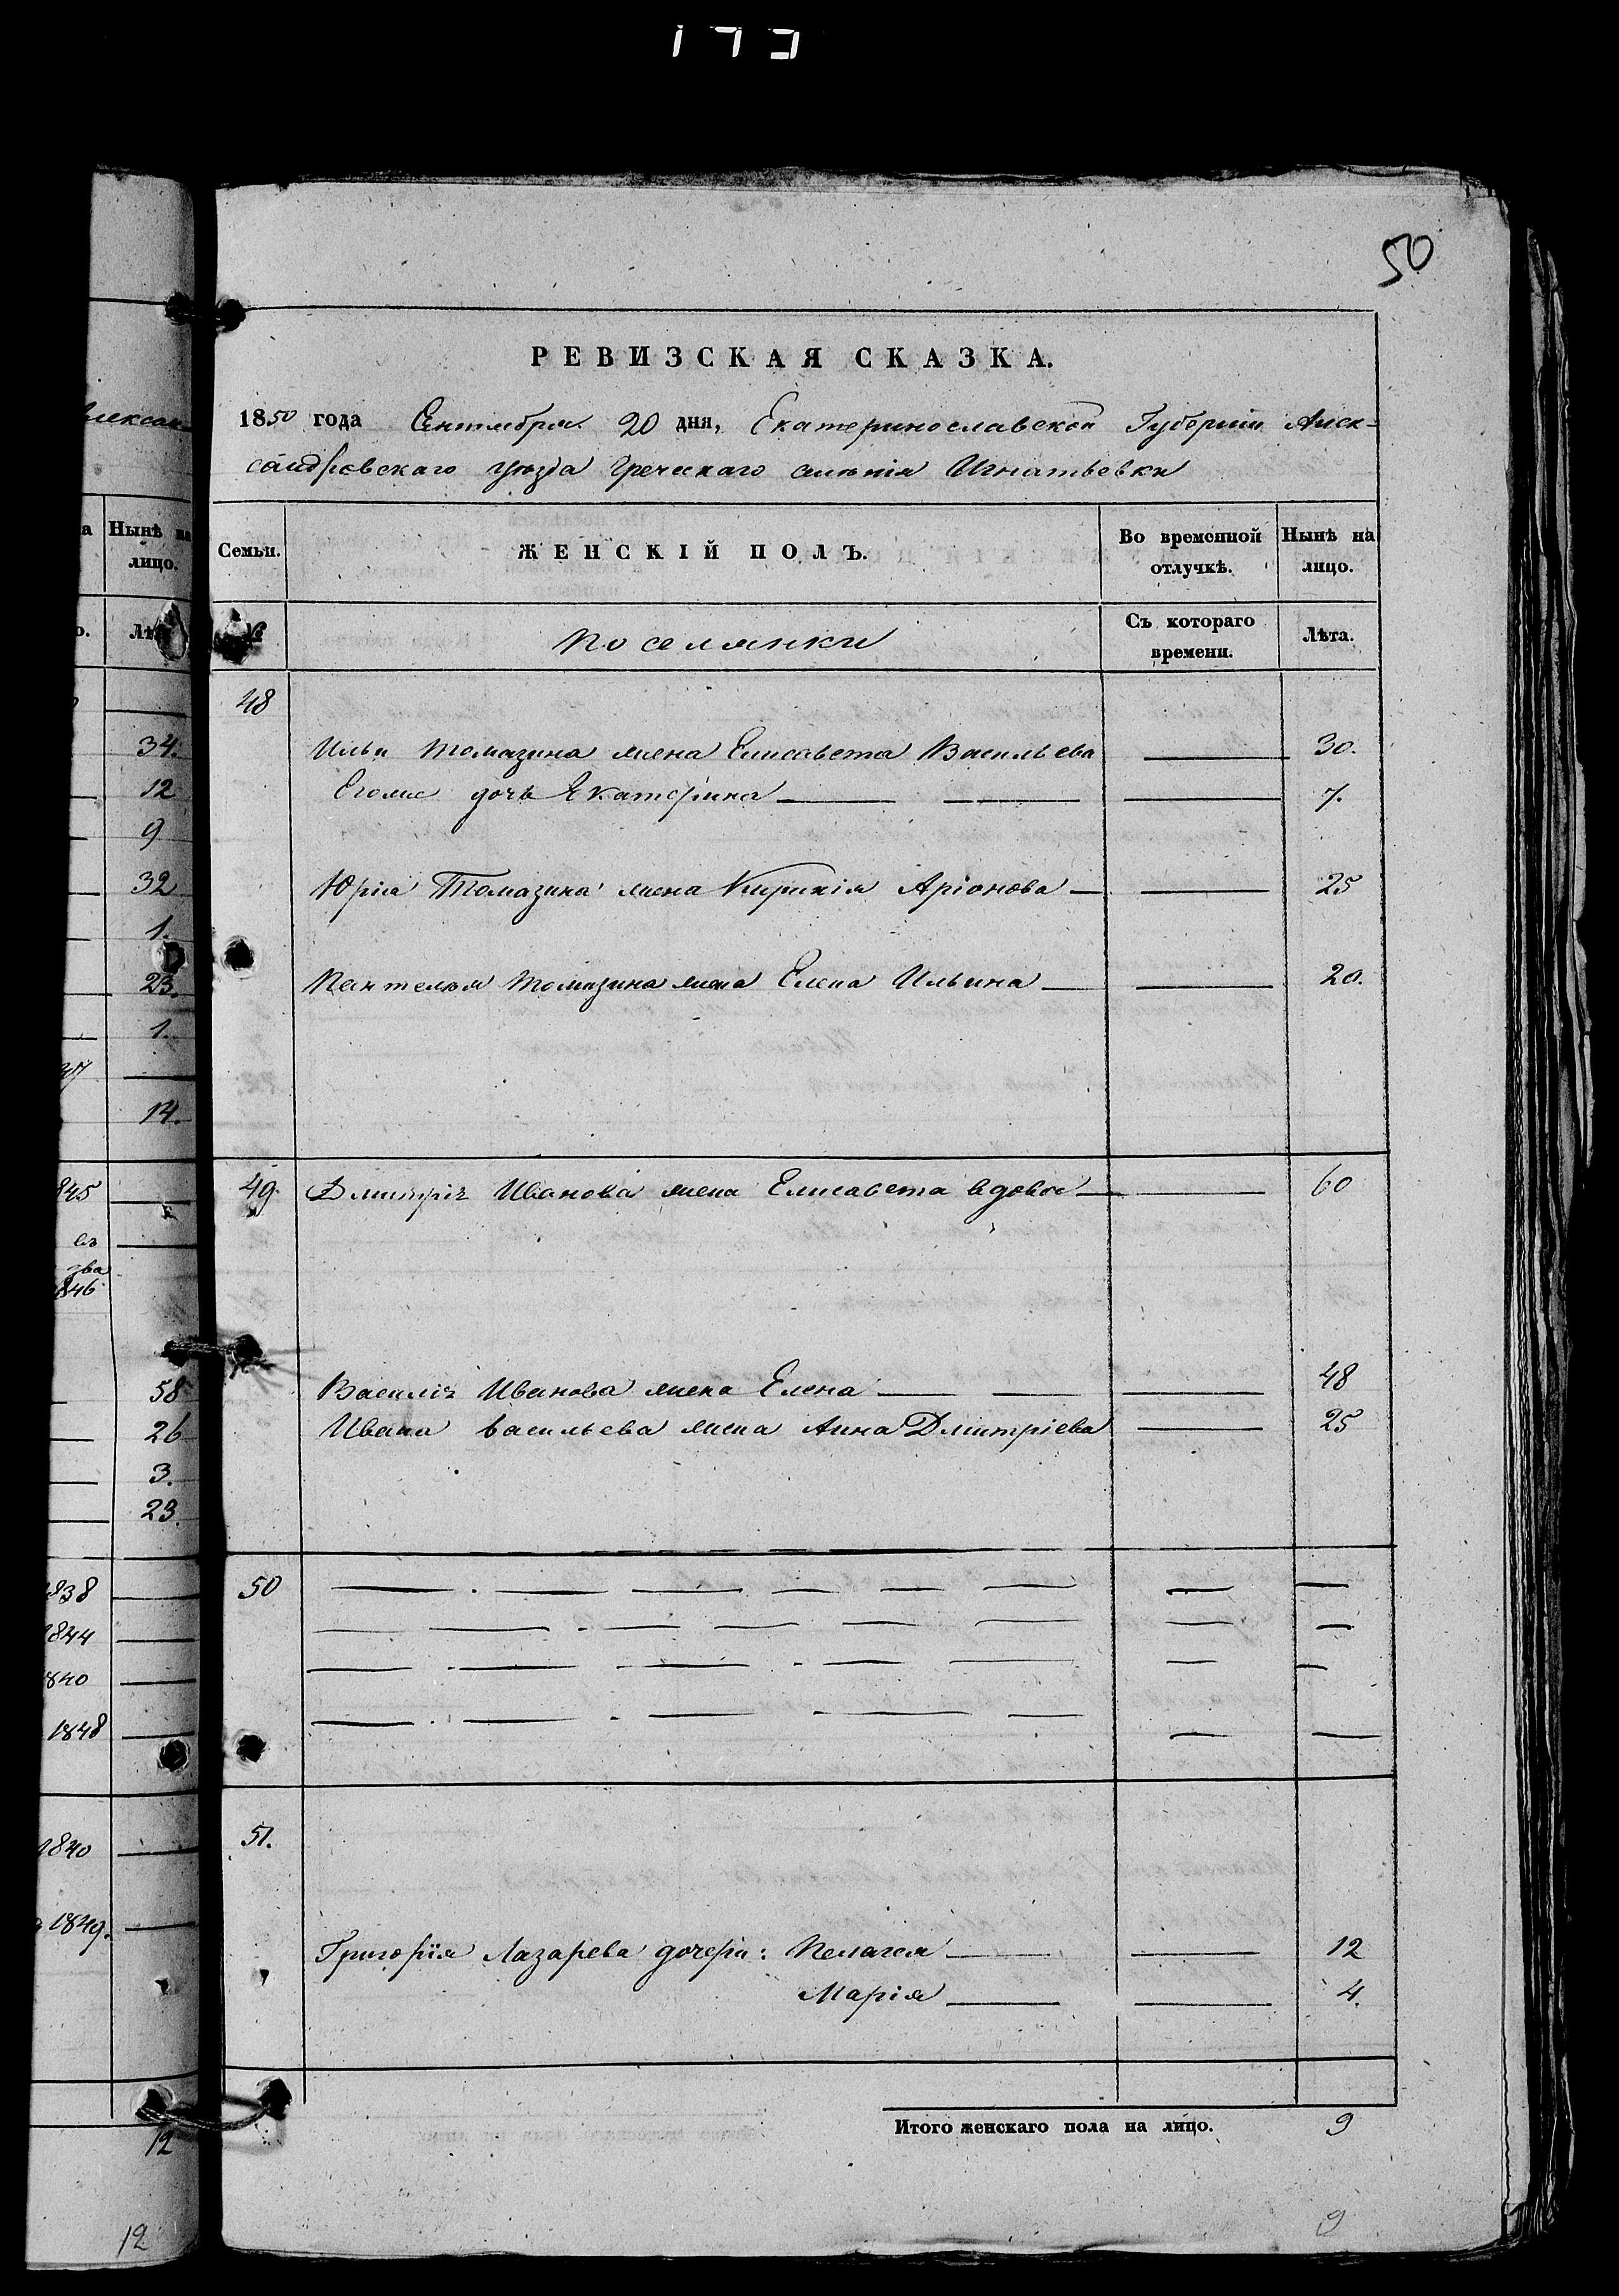 173
50
РЕВИЗСКАЯ СКАЗКА.
1850 года Сентября 20 дня, Екатеринославской Губерніи Алек=
сандровскаго уезда Греческаго селенія Игнатьевки
Семьи. ЖЕНСКІЙ ПОЛЪ. Во временной отлучкѣ. Нынѣ на лицо.
№ Поселянки Съ котораго времени. Лѣта.
48
Ильи Томазина жена Елисавета Васильева 30.
Егоже дочь Екатерина 7.
Юрія Томазина жена Кирикія Аріонова 25
Пантелея Томазина жена Елена Ильина 20.
49. Дмитрія Иванова жена Елисавета вдова 60
Василія Иванова жена Елена 48
Ивана Васильева жена Анна Дмитріева 25
50
51.
Григорія Лазарева дочери: Пелагея 12
Марія 4.
Итого женскаго пола на лицо. 9
9
Нынѣ на
лицо.
34.
12
9
32
1.
23.
1.
14.
845
846
58
26
3.
23.
1838
1844
1840
1848
1840
1849.
12
12